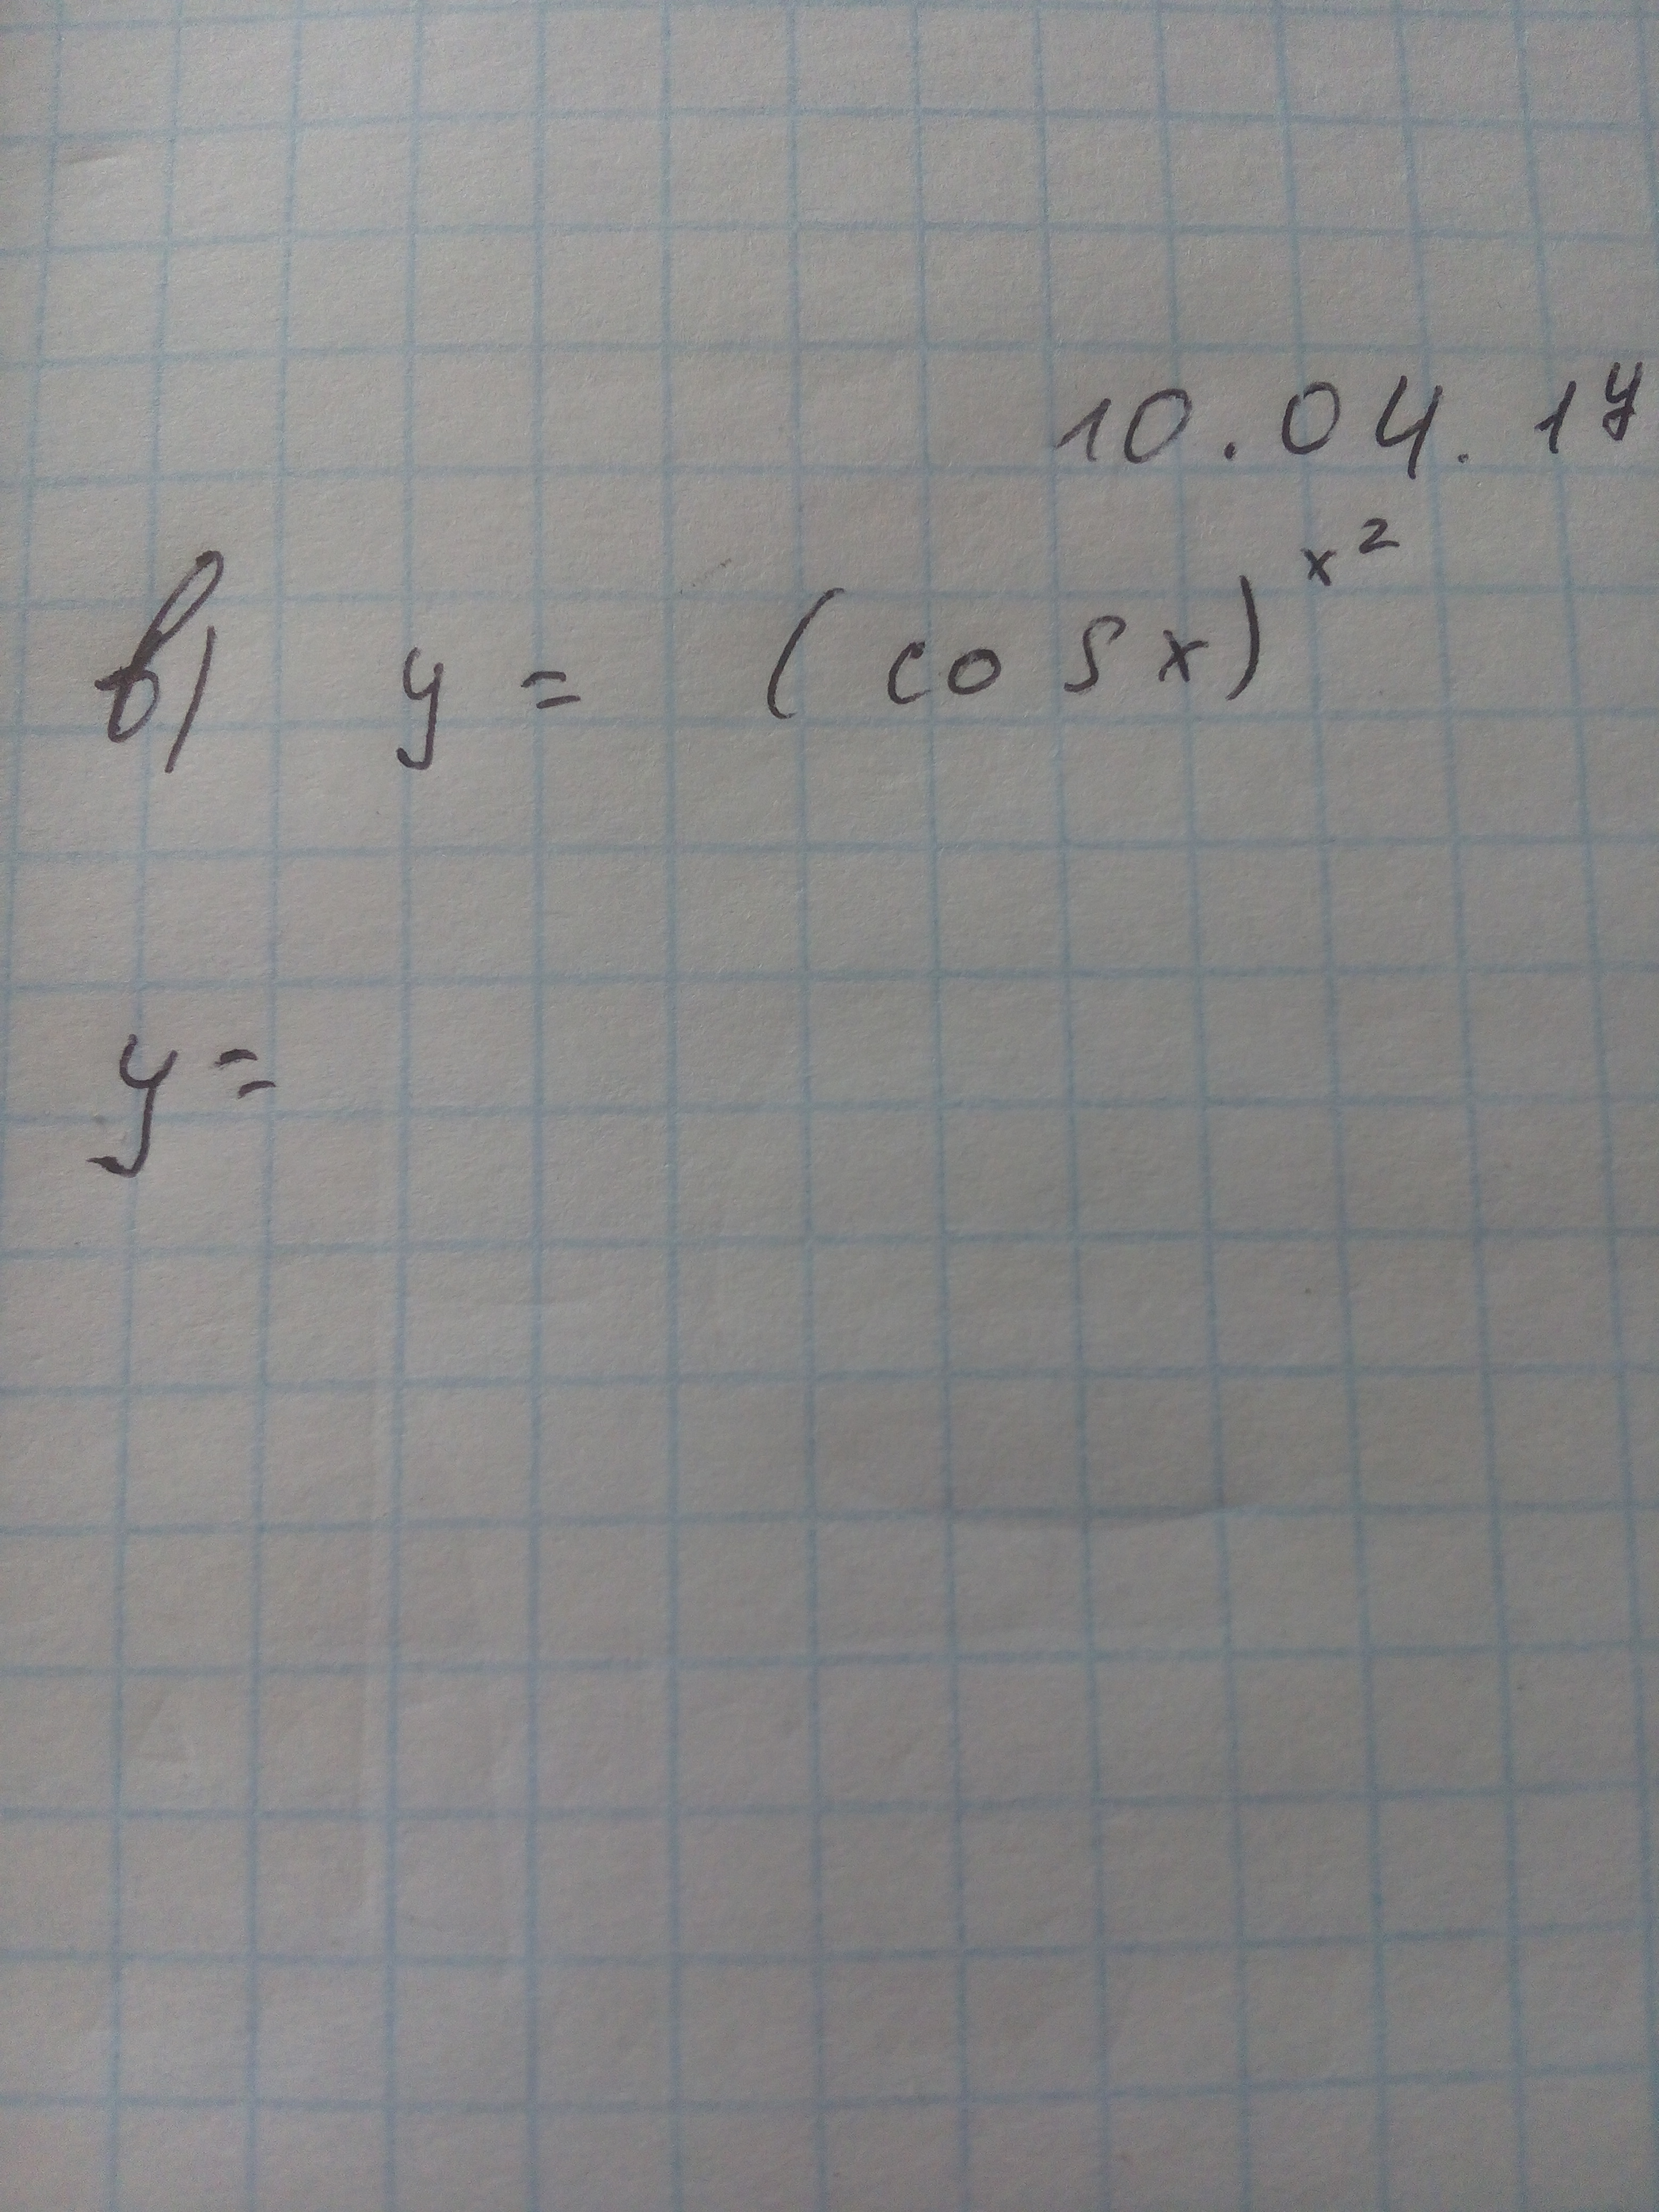 10.04.17
в) y = (cos x)^x^2
y =